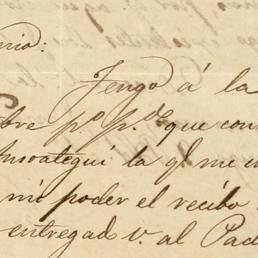 nio:
Tengo á la
bre pº pº que con
Ansoategui la ql. me
mi poder el recibo
entregad v. al Pad